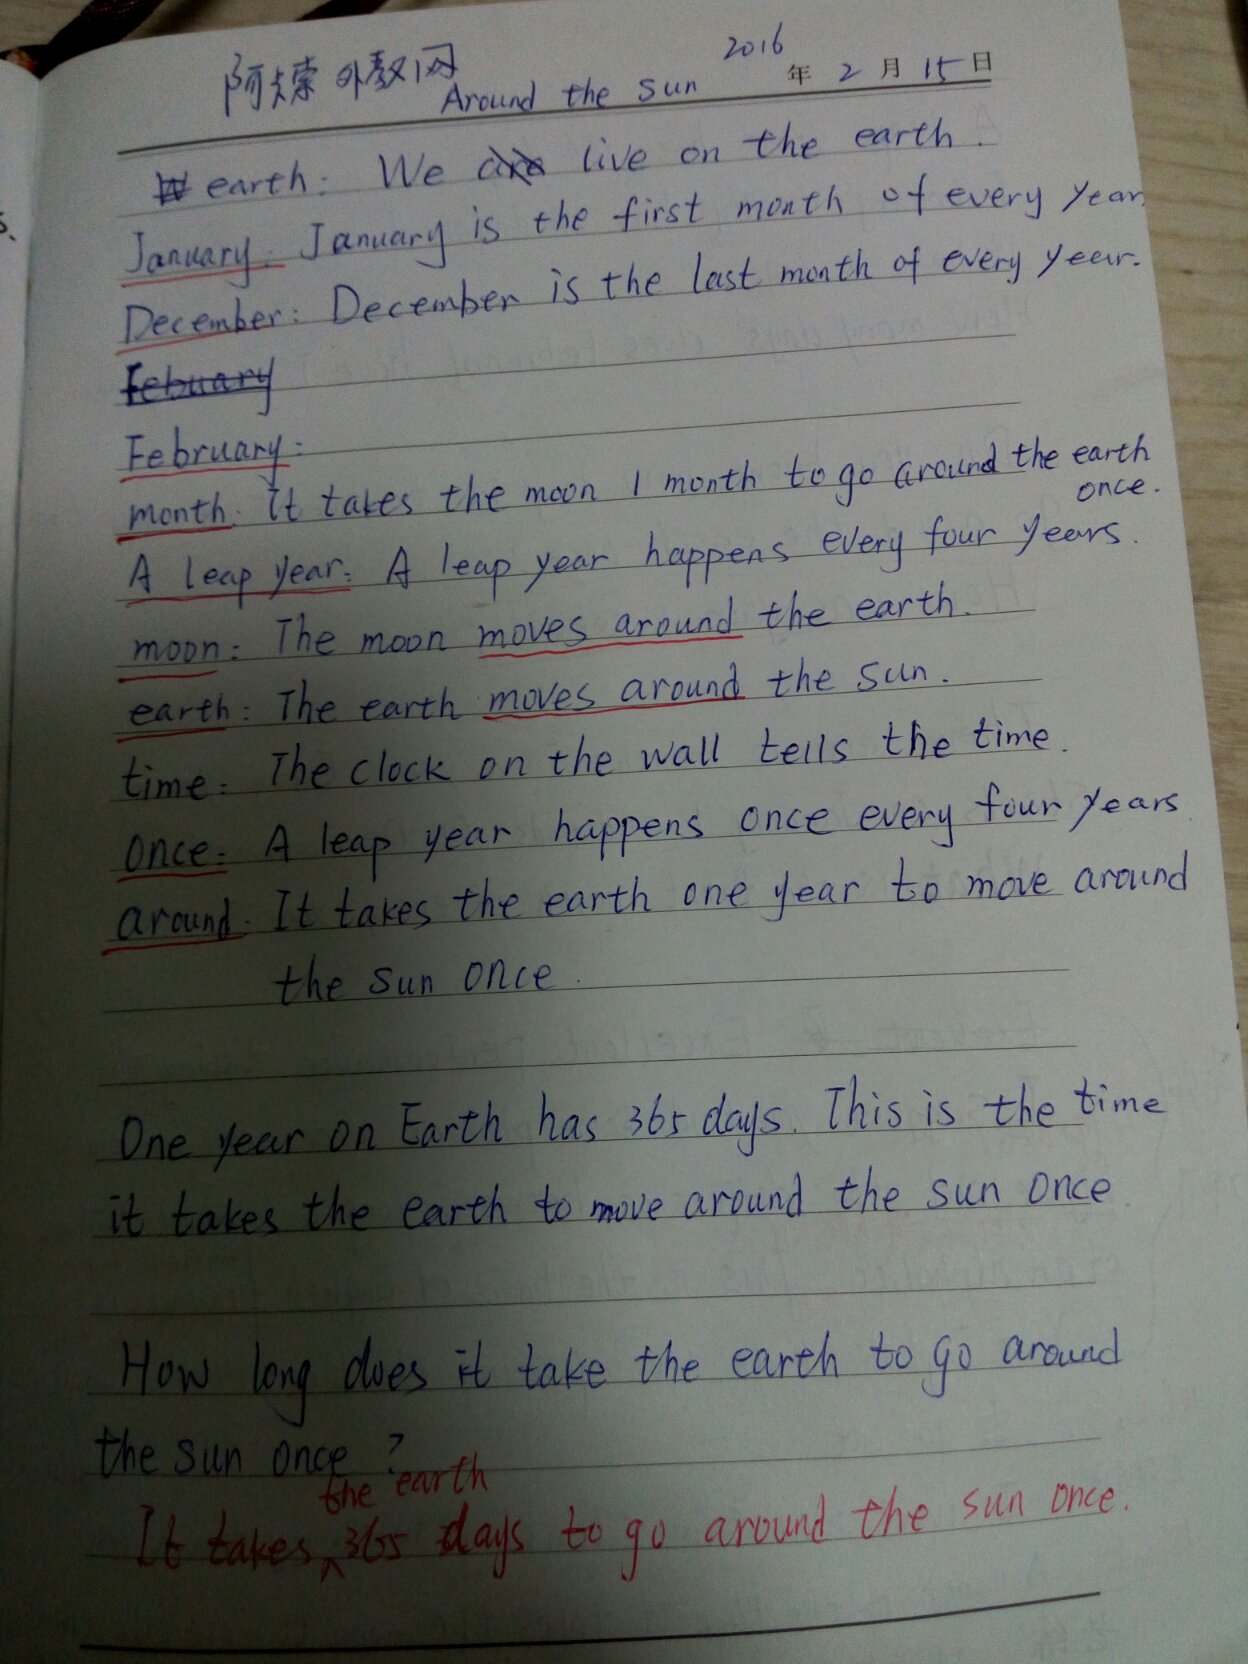 阿卡索外教网
Around the sun 2016年2月15日
earth: We live on the earth.
January: January is the first month of every year.
December: December is the last month of every year.
Febuary
February:
month: It takes the moon 1 month to go around the earth
once.
A leap year: A leap year happens every four years.
moon: The moon moves around the earth.
earth: The earth moves around the sun.
time: The clock on the wall tells the time.
once: A leap year happens once every four years
around: It takes the earth one year to move around
the sun once.
One year on Earth has 365 days. This is the time
it takes the earth to move around the sun once
How long does it take the earth to go around
the sun once?
the earth
It takes 365 days to go around the sun once.